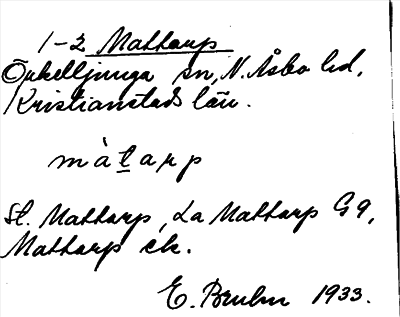 1-2 Mattarp
Örkelljunga sn, N. Åsbo hd,
Kristianstads län.
màtarp
St. Mattarp, La Mattarp G 9,
Mattarp ek.
E. Bruhn 1933.